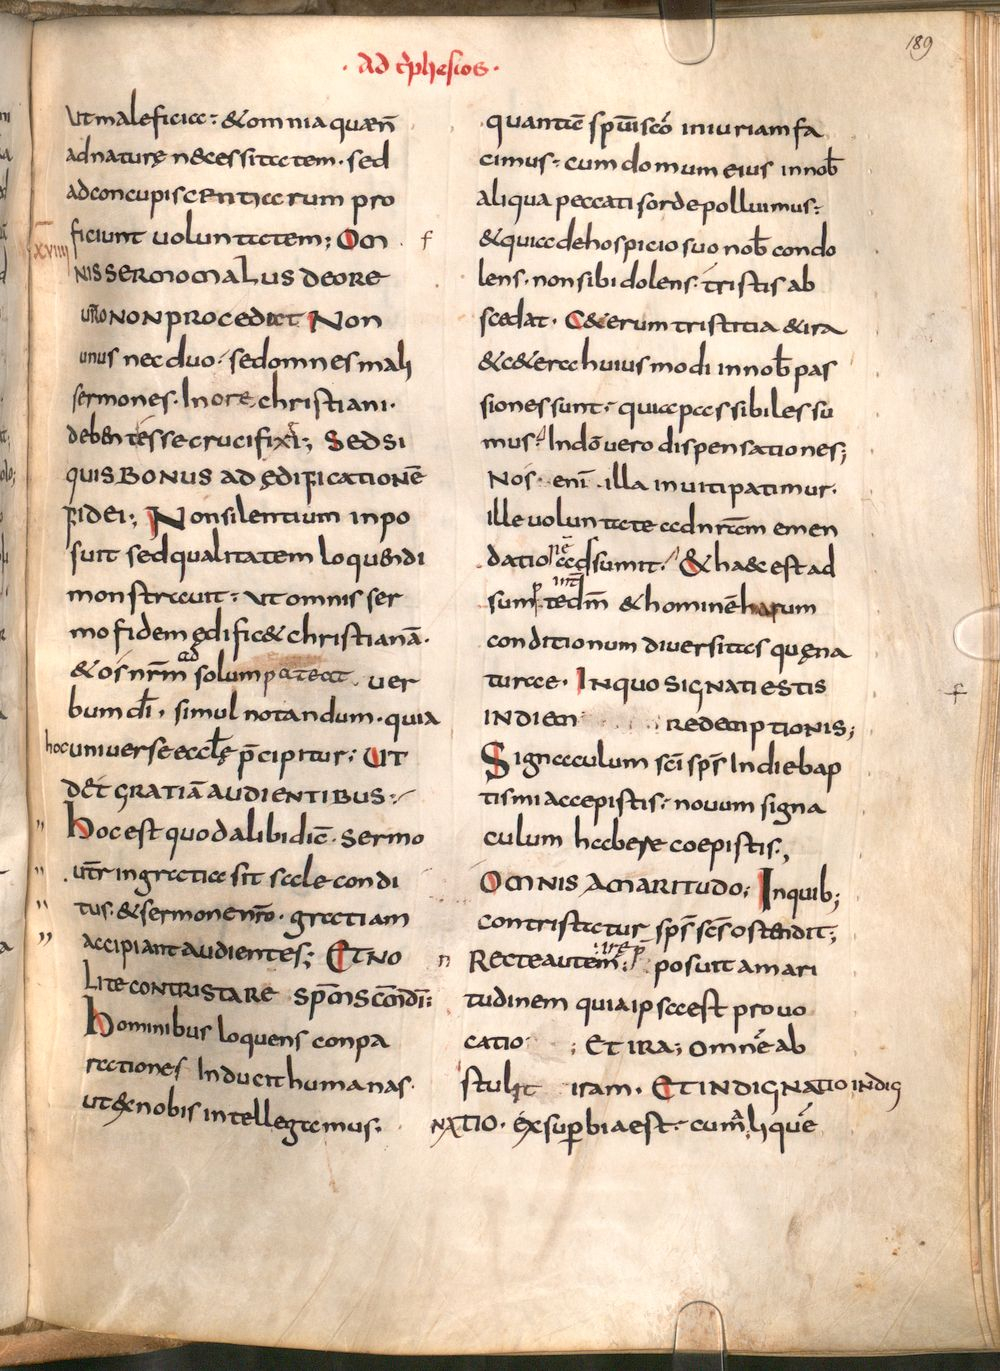 189
· Ad ephesios ·
ut maleficia: & omnia quae n̄
ad naturę necessitatem · sed
ad concupiscentiarum pro
ficiunt voluntatem; Om
xviiij
f
nis sermo malus de ore
ur̄o non procedat Non
unus nec duo · sed omnes mali
sermones · In ore christiani ·
debent esse crucifixi; Sed si
quis bonus ad ędificationē
fidei; Non silentium inpo
suit sed qualitatem loquendi
monstrauit: ut omnis ser
mo fidem ędific& christianā ·
& os nr̄m ad solum pateat uer
bum dī · simul notandum · quia
hoc uniuerse eccłę p̄cipitur: Ut
det gratiā audientibus:
Hoc est quod alibi dic̄ · sermo
uēr in gratia sit sale condi
tus · & sermone nr̄o · gratiam
accipiant audientes; Et no
lite contristare sp̄m scm̄ dī:
Hominibus loquens conpa
rationes Inducit humanas ·
ut ex nobis intellegamus:
quantā spūi scō iniuriam fa
cimus: cum domum eius in nob̄
aliqua peccati sorde polluimus:
& quia de hospicio suo nob̄ condo
lens · non sibi dolens · tristis ab
scedat · C&erum tristitia & ira
& c&era huiusmodi in nob̄ pas
siones sunt · quia passibiles su
mus · In dō uero dispensationes;
Nos enī illa inuiti patimur ·
ille uoluntate ad nr̄am emen
dationē adsumit · & haec est ad
sumpt̄ int̄ dm̄ & hominē harum
conditionum diuersitas quę na
turae · In quo signati estis
f
in diem redemptionis;
Signaculum scī sps̄ In die bap
tismi accepistis: nouum signa
culum habere coepistis.,
Omnis amaritudo; Inquib;
contristatur sps̄ scs̄ ostendit;
n Recte autem · irę p̄posuit amari
tudinem quia ipsa est prouo
catio ; Et ira; Omnē ab
stulit iram · Et indignatio indig
natio · ex superbia est · cum aliquē